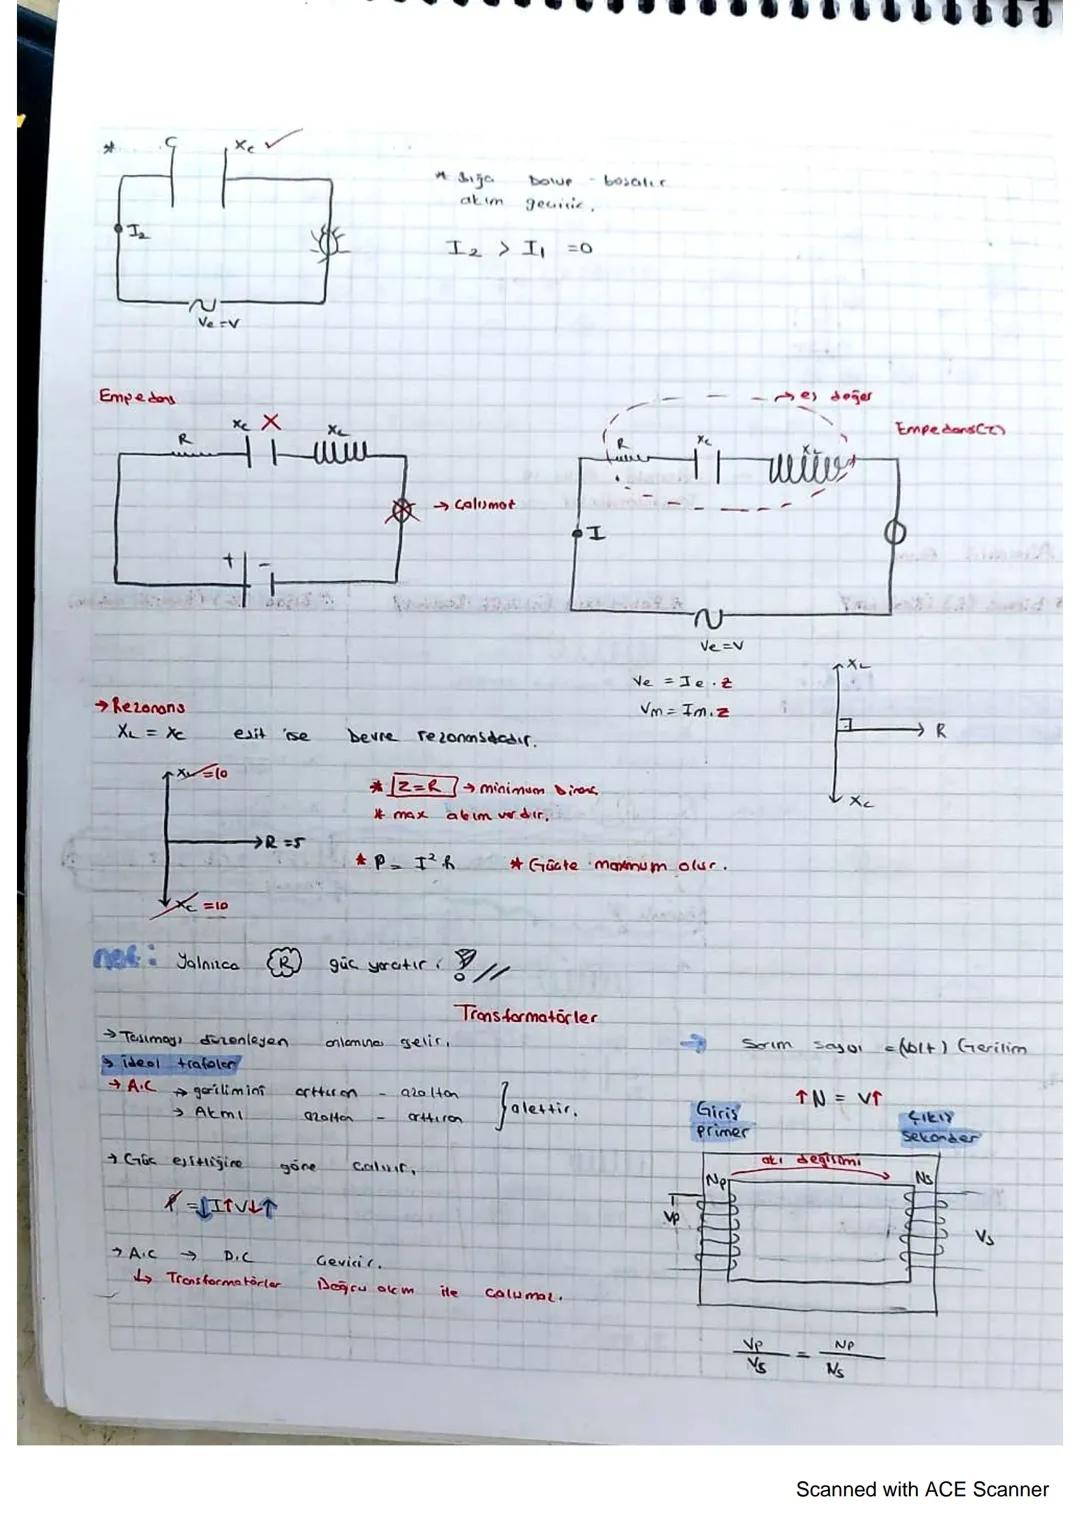 * C Xc ✓
I2
Ve = V
* Sığa dolup - boşalır
akım geçirir.
I2 > I1 = 0
Empedans
R Xc X XL
→ Çalışmat
+ -
→ eş değer
Empedans(Z)
R Xc XL
I
Ve = V
Ve = Ie . Z
Vm = Im . Z
XL
R
Xc
→ Rezonans
XL = Xc eşit ise devre rezonanstadır.
XL = 10
R = 5
Xc = 10
* Z = R → minimum direnç
* max akım vardır.
* P = I² . R * Güçte maxmum olur.
not: Yalnızca R güç yaratır
Transformatörler
→ Taşımayı düzenleyen anlamına gelir.
→ ideal trafolar
→ A.C → gerilimini arttıran - azaltan
→ Akımı azaltan - arttıran } alettir.
→ Güç eşitliğine göre çalışır.
P = ↓I↑V↓↑
→ A.C → D.C Çevirir.
↳ Transformatörler Doğru akım ile çalışmaz.
→ Sarım sayısı = (Volt) Gerilim
↑N = V↑
Giriş
primer
Çıkış
sekonder
akı değişimi
Np Ns
Vp Vs
Vp / Vs = Np / Ns
Scanned with ACE Scanner